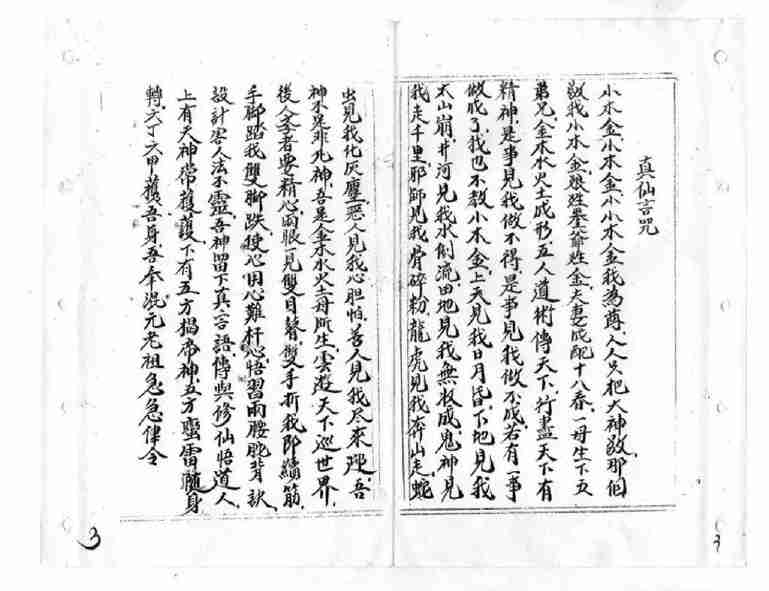 真仙言咒
小木金小木金小小木金我為尊人人只把大神敬那個
敬我小木金娘姓李爺姓金夫妻成配十八春一母生下五
弟兄金木水火土成形五人道術傳天下行盡天下有
精神是事見我做不得是事見我做不成若有一事
做成了我也不教小木金上天見我日月昏下地見我
太山崩井河見我水倒流田地見我無收成鬼神見
我走千里邪師見我骨碎粉龍虎見我奔山走蛇
出見我化灰塵惡人見我心胆怕善人見我尽來迎吾
神不是非凡神吾是金木水火土母所生雲遊天下巡世界
後人李者要精心兩眼一見雙目瞽雙手折我即續筋
手脚踏我雙脚跌使心用心難杆心悟習兩腰駝背訣
設計害人法不靈吾神留下真言語傳與修仙悟道人
上有天神常護護下有五方揭帝神五方蛮雷随身
轉六丁六甲護吾身吾奉混元老祖急急律令
3
3